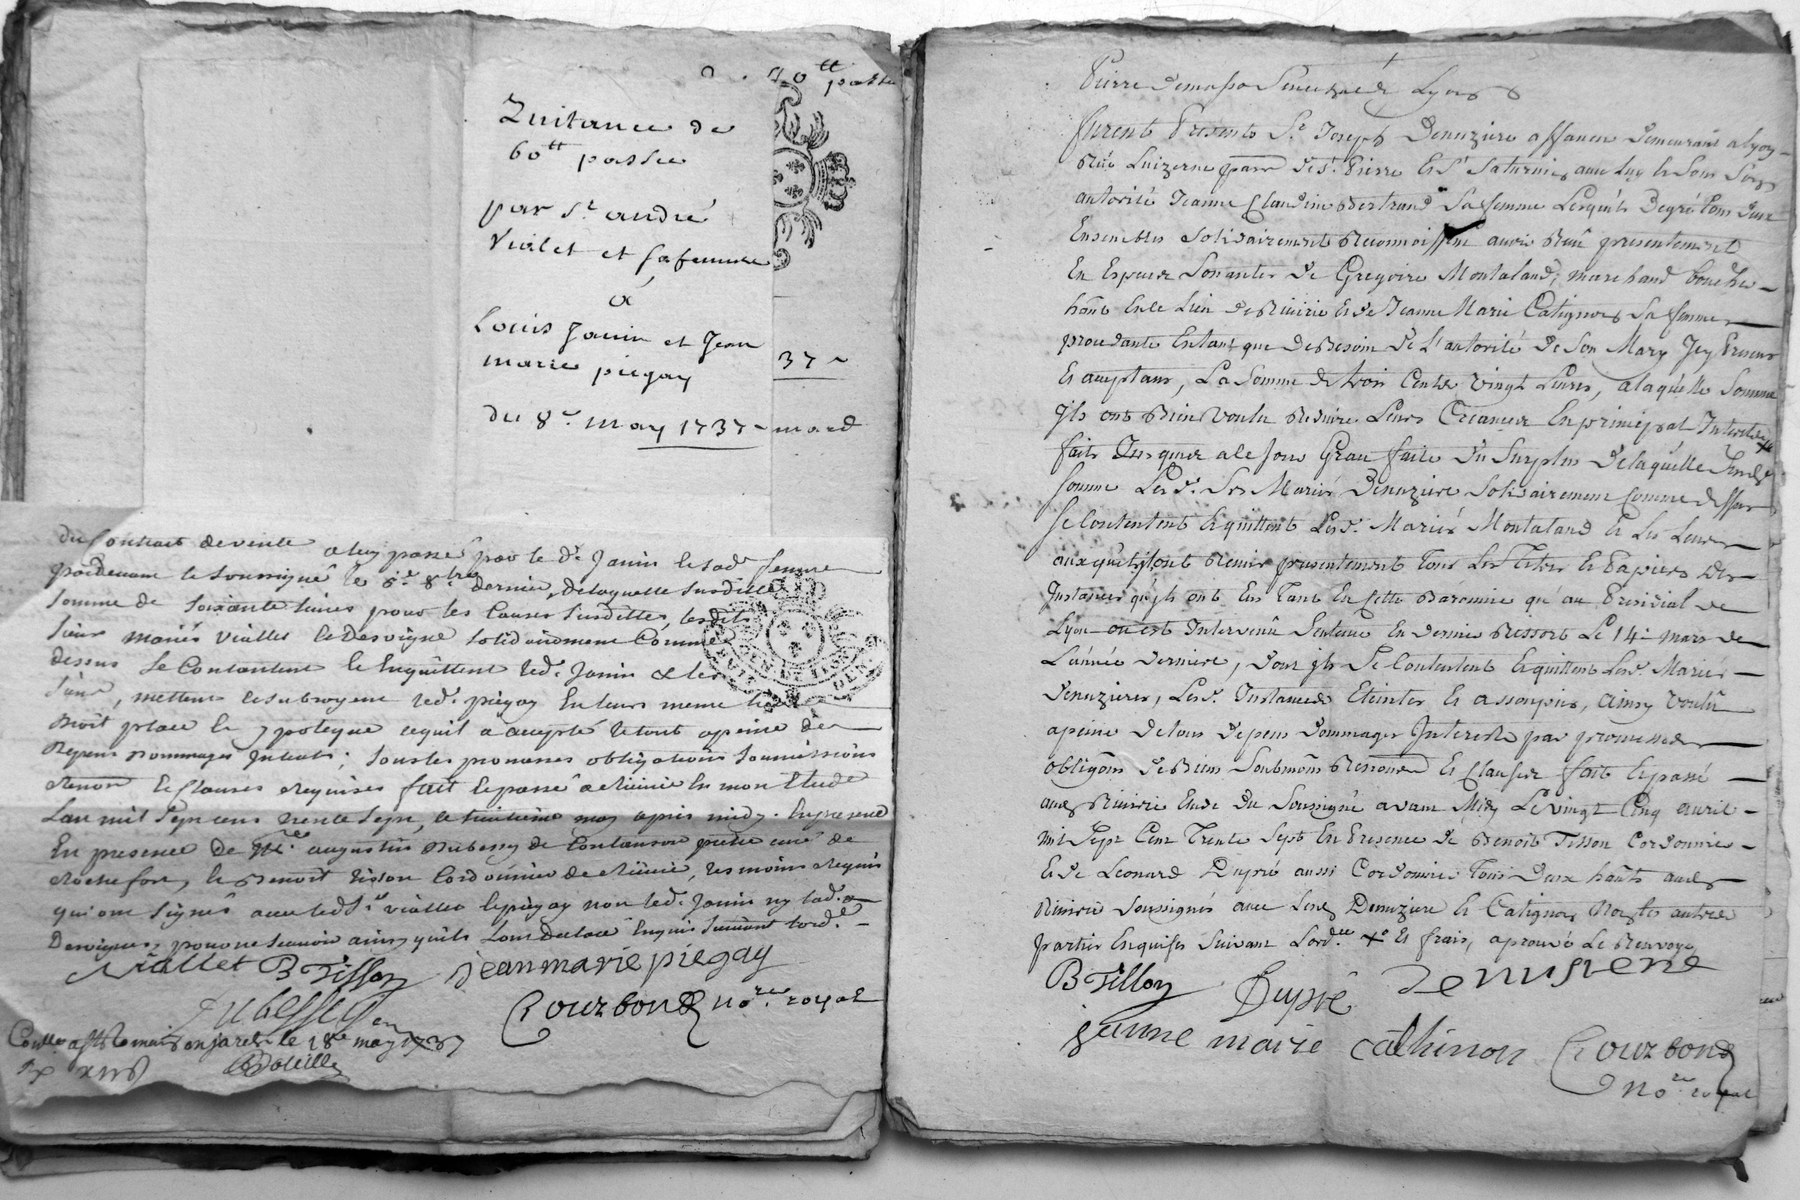 70tt passé
Quitance de
60tt passée
par Sr andré
Viallet et sa femme
a
Louis Janin et Jean
marie piegay
37
du 8e. may 1737
du Contrait de vente a luy passé par le d. Janin et sad. femme
pardevant le soussigné le 8bre dernier, de laquelle susditte
somme de soixante livres pour les causes susdittes, lesdits
sieur mariés viallet et Desvigne solidairement comme
dessus se contentent et enquittent led. Janin & les
siens, mettent et subrogent led. piegay en leurs meme lieu
droit place et ypoteque ce quil a accepté le tout a peine de
depens dommages interets; sous les promesses obligations soumissions
et clauses requises fait et passé a Riverie en mon Etude
L'an mil sept cens trente sept, le huitieme may apres midy.
En presence de Mre. augustin Dubessy de Contenson pretre curé de
Rochefort, et Benoit Tisson Cordonnier de Riverie, temoins requis
qui ont signés avec led. Sr. viallet et piegay non led. Janin ny lad.
Desvignes pour ne scavoir ainsy quils ont declaré enquis suivant lord.
Viallet B Tisson jean marie piegay
Dubessy Courbon no.re royal
Con.lle a St Romain en jarets le 18e may 1737
furent Presents Sr. Joseph Denuziere affaneur demeurant a lyon
Rüe Luizerne parr. de St. Pierre et St Saturnin avec luy et sous son
autorité Jeanne Claudine Bertrand sa femme Lesquels de gré tous deux
Ensembles solidairement Reconnoissent avoir Reçû presentement
En Especes sonantes de Gregoire Montaland, marchand boucher
habt. En le Lieu de Riverie et de Jeanne Marie Catignon sa femme
procedante Entant que de Besoin de L'autorité de son Mary Icy Present
Et acceptant, La somme de trois Cents vingt Livres, a laquelle somme
Ils ont Bien voulu Reduire Leurs Creances En principal Interets
fraits Jusques a ce Jour Grace faite du surplus de laquelle susd.
somme Lesd. Srs Mariés Denuziere solidairement comme dessus
se contentent et quittent Lesd. Mariés Montaland et Les Leurs
auxquels ils ont Remis presentement tous Les titres et Papiers des
Instances qu'ils ont Eus tant En cette Baronnie qu'au Presidial de
Lyon ou est Intervenû sentence En dernier Ressort Le 14. mars de
L'année derniere, dont ils se contentent et quittent Lesd. Mariés
Denuzieres, Lesd. Instances Eteintes et assoupies, ainsy voulû
a peine de tous depens dommages Interests par promesses
obligaôns de Biens soubmôns Renon. et clauses fait et passé
aud. Riverie Etude du soussigné avant Midy Le vingt Cinq avril
mil sept cent trente sept En Presence de Benoit Tisson Cordonnier
et de Leonard Dupré aussi Cordonnier tous deux habts. aud.
Riverie soussignés avec Led. Denuziere et Catignon Non les autres
parties Enquises suivant L'ord.ce et frais, aprouvé Le Renvoye
B Tisson Dupré Denusiere
janne marie cathinon Courbon
no.re royal